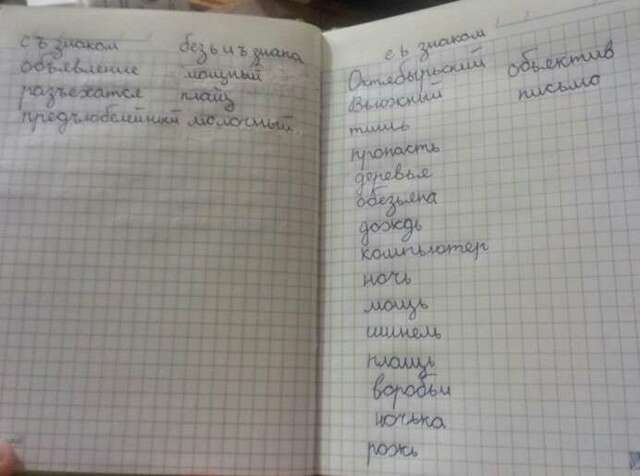 с ъ знаком без ь и ъ знака
объявление мощный
разъехатся плащ
предъюбелейний молочный
с ь знаком
Октябырьский объектив
Вьюжный письмо
тишь
пропасть
деревья
обезьяна
дождь
компьютер
ночь
мощь
шинель
площь
воробьи
ночька
рожь